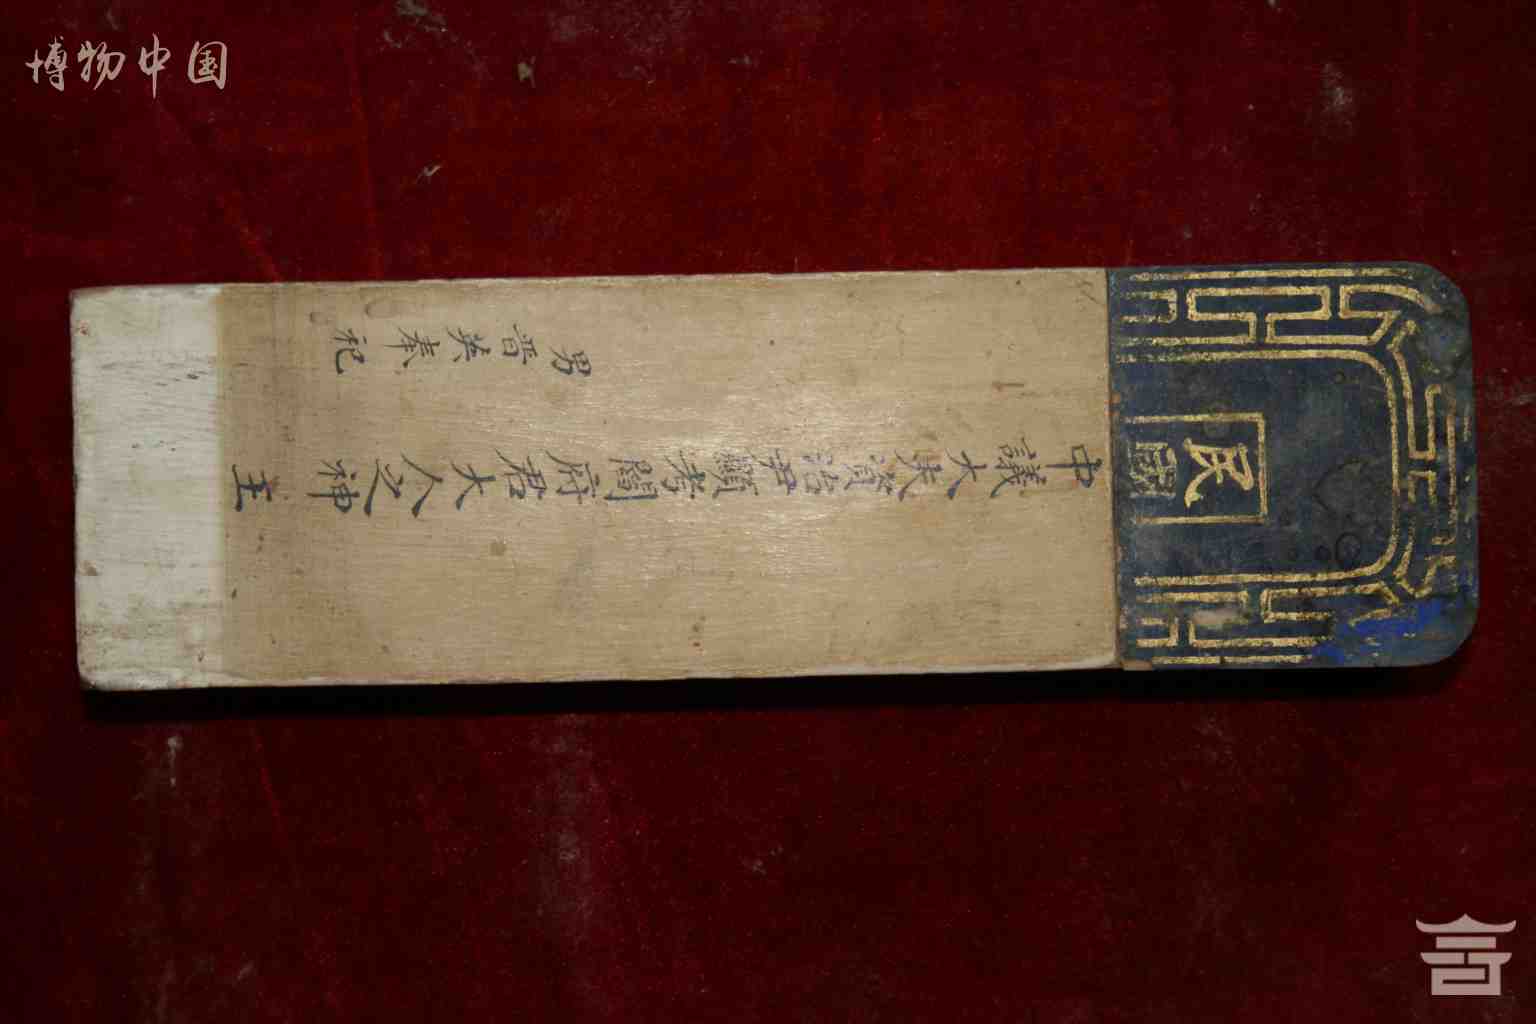 博物中国
民國
中議大夫資治尹顯考閻府君大人之神主
男晋英奉祀